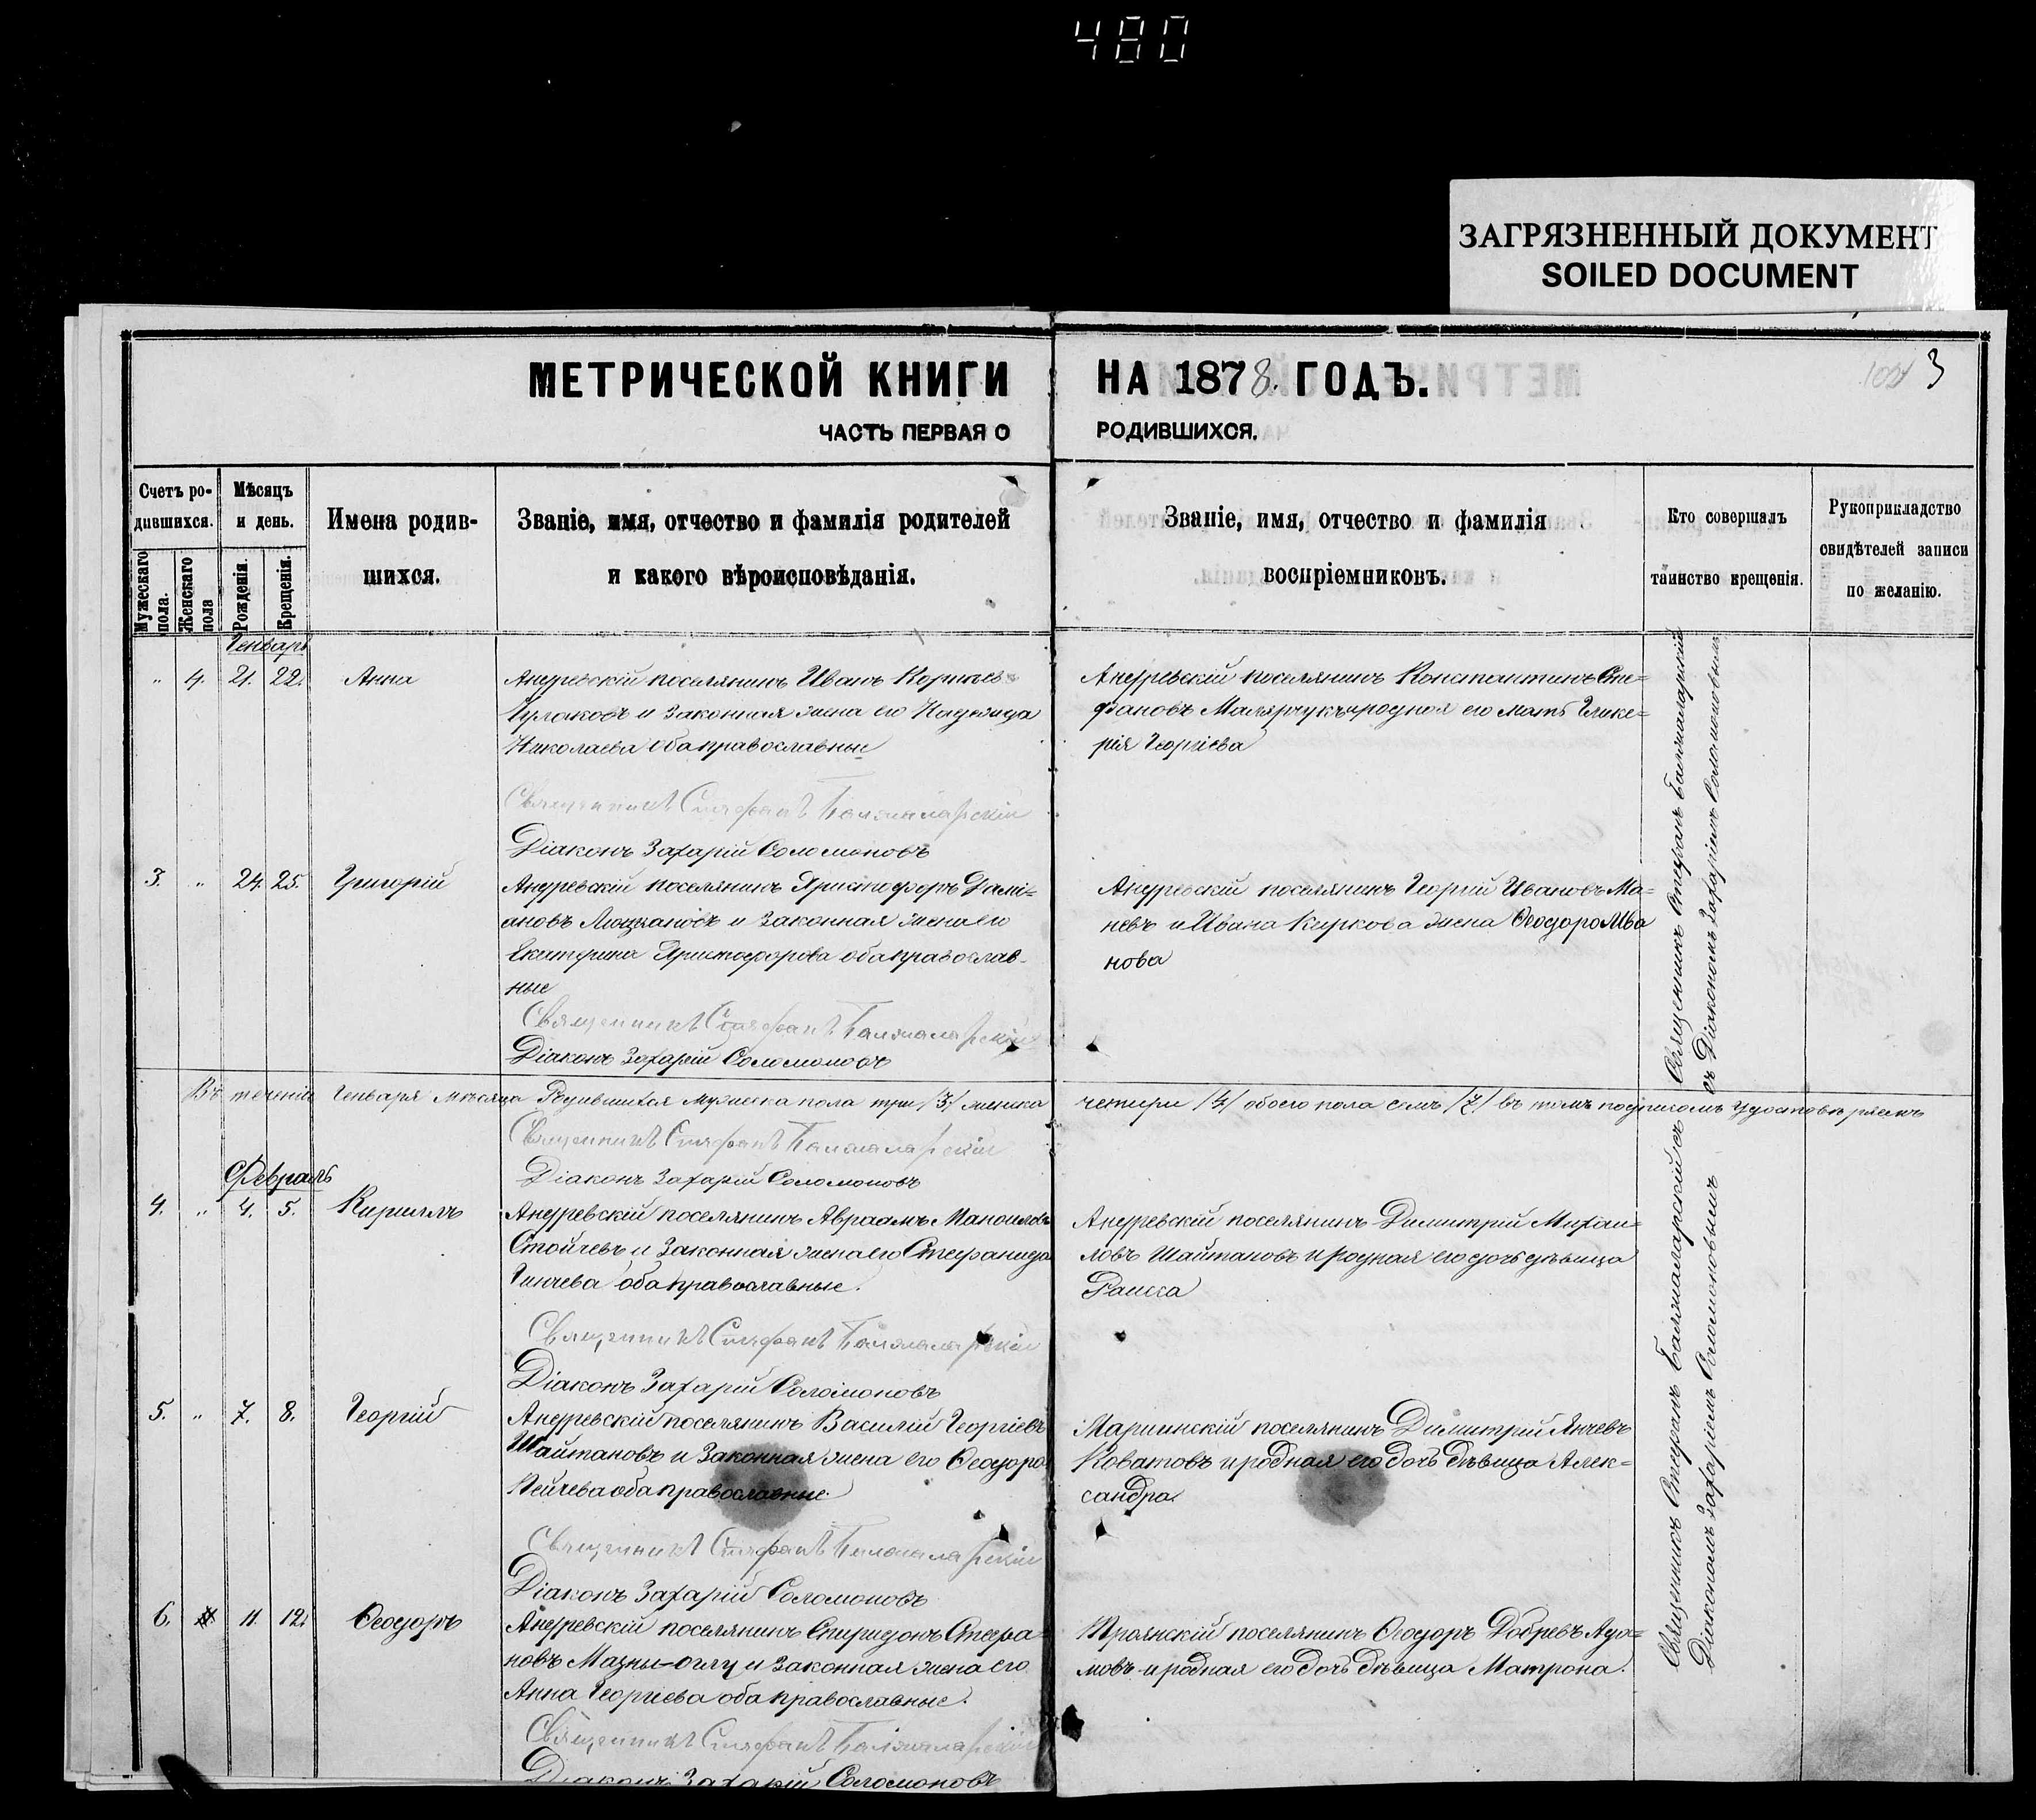 480
ЗАГРЯЗНЕННЫЙ ДОКУМЕНТ
SOILED DOCUMENT
МЕТРИЧЕСКОЙ КНИГИ НА 1878. ГОДЪ.
3
ЧАСТЬ ПЕРВАЯ О РОДИВШИХСЯ.
Счетъ ро-
дившихся.
Мужескаго
пола.
Женскаго
пола
Мѣсяцъ
и день.
Рожденія.
Крещенія.
Имена родив-
шихся.
Званіе, имя, отчество и фамилія родителей
и какого вѣроисповѣданія.
Званіе, имя, отчество и фамилія
воспріемниковъ.
Кто совершалъ
таинство крещенія.
Рукоприкладство
свидѣтелей записи
по желанію.
Генварь
" 4. 21. 22. Анна
Андревскій поселянинъ Иванъ
и законная жена его Надежда
Николаева оба православные
Андревскій поселянинъ Константинъ Сте=
фановъ родная его мать Глике=
рія Георгіева
Священникъ Стефанъ
Діаконъ Захарій Соломоновъ
3. " 24. 25. Григорій
Андревскій поселянинъ Христофоръ Дамі=
ановъ и законная жена его
Екатерина Христофорова оба православ-
ные
Андревскій поселянинъ Георгій Ивановъ Ма=
невъ и Ивана Киркова жена Ѳеодора Ива
нова
Священникъ Стефанъ
Діаконъ Захарій Соломоновъ
Въ теченіи Генваря мѣсяца Родившихся мужеска пола три /3/ женска четыри /4/ обоего пола семь /7/ въ томъ подписомъ удостовѣряемъ
Священникъ Стефанъ
Діаконъ Захарій Соломоновъ
Февраль
4. " 4. 5. Кириллъ
Андревскій поселянинъ Авраамъ Маноиловъ
Стойчевъ и законная жена его Стефанида
оба православные.
Андревскій поселянинъ Димитрій Михаи=
ловъ Шайтановъ и родная его дочь дѣвица
Раисса
Священникъ Стефанъ
Діаконъ Захарій Соломоновъ
5. " 7. 8. Георгій
Андревскій поселянинъ Василій Георгіевъ
Шайтановъ и законная жена его Ѳеодора
Пейчева оба православные.
Маріинскій поселянинъ Димитрій Янчевъ
Коватовъ и родная его дочь дѣвица Алек=
сандра.
Священникъ Стефанъ
Діаконъ Захарій Соломоновъ
6. 11. 12. Ѳеодоръ
Андревскій поселянинъ Спиридонъ Стефа
новъ Мазны-оглу и законная жена его
Анна Георгіева оба православные.
Троянскій поселянинъ Ѳеодоръ Добревъ Ада=
мовъ и родная его дочь дѣвица Матрона.
Священникъ Стефанъ
Діаконъ Захарій Соломоновъ
Священникъ Стефанъ
съ Діакономъ Захаріемъ Соломоновымъ
Священникъ Стефанъ съ
Діакономъ Захаріемъ Соломоновымъ